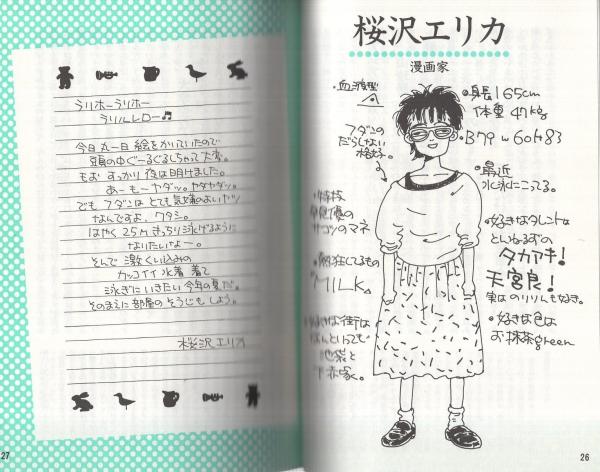 桜沢エリカ
漫画家
・血液型
A
・身長165cm
体重47kg
・B79 W60 H83
フダンの
だらしない
格好。
・最近
水泳にこってる。
・特技
のマネ
・好きなタレントは
とんねるずの
タカアキ!
天宮良!
実はのりりんも好き。
・熱狂してるもの
MILK
・好きな色は
お抹茶green
・好きな街は
なんといっても
池袋と
下赤塚。
26
ラリホーラリホー
ラリルレロー♫
今日丸一日絵をかいていたので
頭の中ぐーるぐるしちゃって大変。
もおすっかり夜は明けました。
あーもーヤダッ。ヤダヤダッ。
でもフダンはとても気の
なんですよ、ワタシ。
はやく25mきっちり泳げるように
なりたいなー。
そんで激くい込みの
カッコイイ水着着て
泳ぎにいきたい今年の夏だ。
そのまえに部屋のそうじもしよう。
桜沢エリカ
27